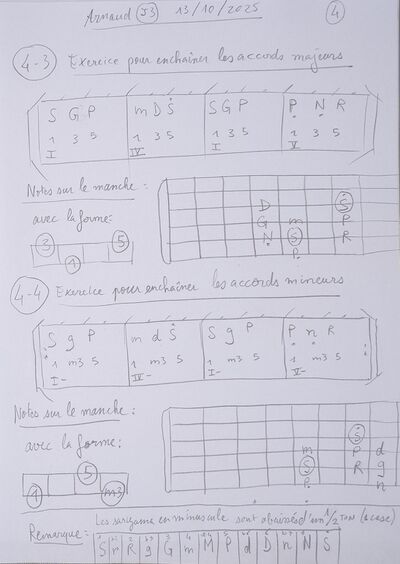 Arnaud J3 13/10/2025 4
4-3 Exercice pour enchaîner les accords majeurs
S G P m D Ṡ S G P P Ṇ R
1 3 5 1 3 5 1 3 5
I IV I V
Notes sur le manche :
avec la forme :
3 5
1
D Ṡ
G m P
Ṇ S R
P
4-4 Exercice pour enchaîner les accords mineurs
S g P m d Ṡ S g P P n R
1 m3 5 1 m3 5 1 m3 5 1 m3 5
I- IV- I- V-
Notes sur le manche :
avec la forme :
5
1 m3
Ṡ
m P d
S R g
P n
Remarque : Les sargams en minuscule sont abaissés d'un 1/2 TON (1 case)
S r R g G m M P d D n N Ṡ